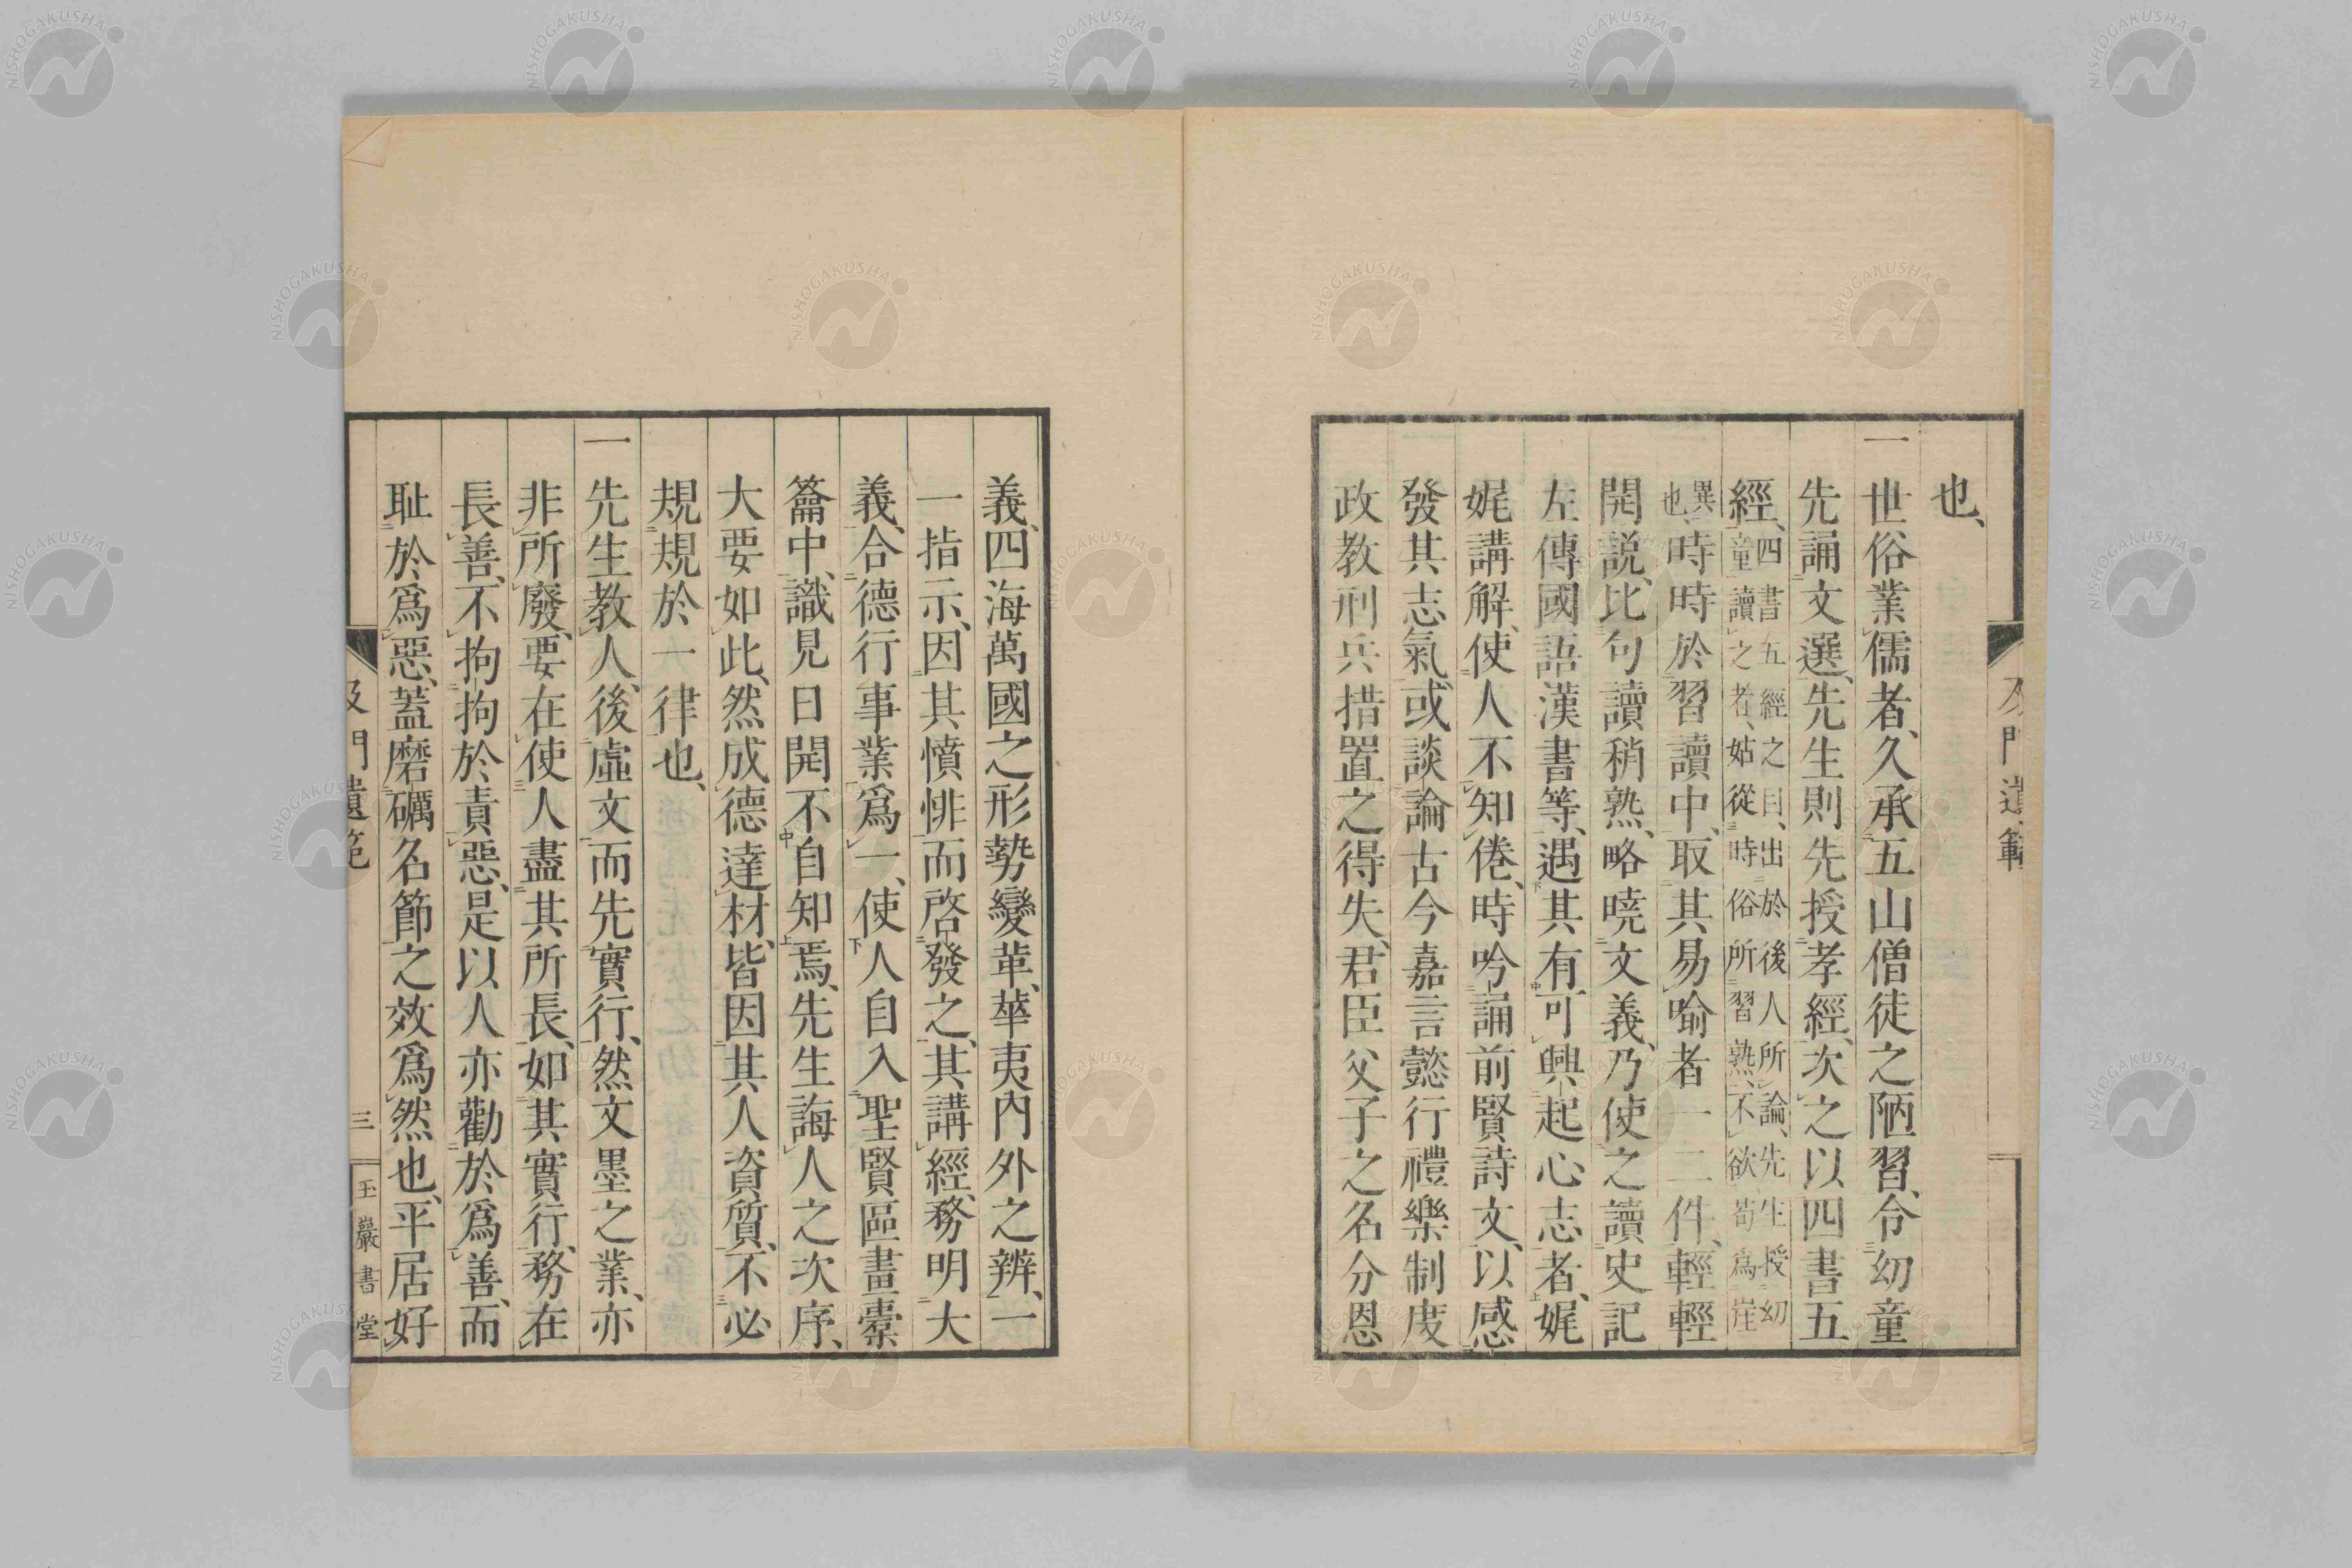 也、
一世俗業儒者、久承五山僧徒之陋習、令幼童
先誦文選、先生則先授孝經、次之以四書五
經、四書五經之目、出於後人所論、先生授幼
童讀之者、姑從時俗所習熟、不欲苟爲崖
異也、時時於習讀中、取其易喻者一二件、輕輕
開説、比句讀稍熟、略曉文義、乃使之讀史記
左傳國語漢書等、遇其有可興起心志者、娓
娓講解、使人不知倦、時吟誦前賢詩文、以感
發其志氣、或談論古今嘉言懿行禮樂制度
政教刑兵措置之得失、君臣父子之名分恩
及門遺範
義、四海萬國之形勢變革、華夷內外之辨、一
一指示、因其憤悱而啓發之、其講經、務明大
義、合德行事業爲一、使人自入聖賢區畫橐
籥中、識見日開不自知焉、先生誨人之次序、
大要如此、然成德達材、皆因其人資質、不必
規規於一律也、
一先生教人、後虛文而先實行、然文墨之業、亦
非所廢、要在使人盡其所長、如其實行、務在
長善、不拘拘於責惡、是以人亦勸於爲善、而
恥於爲惡、蓋磨礪名節之效爲然也、平居好
及門遺範
三
玉巖書堂
NISHOGAKUSHA